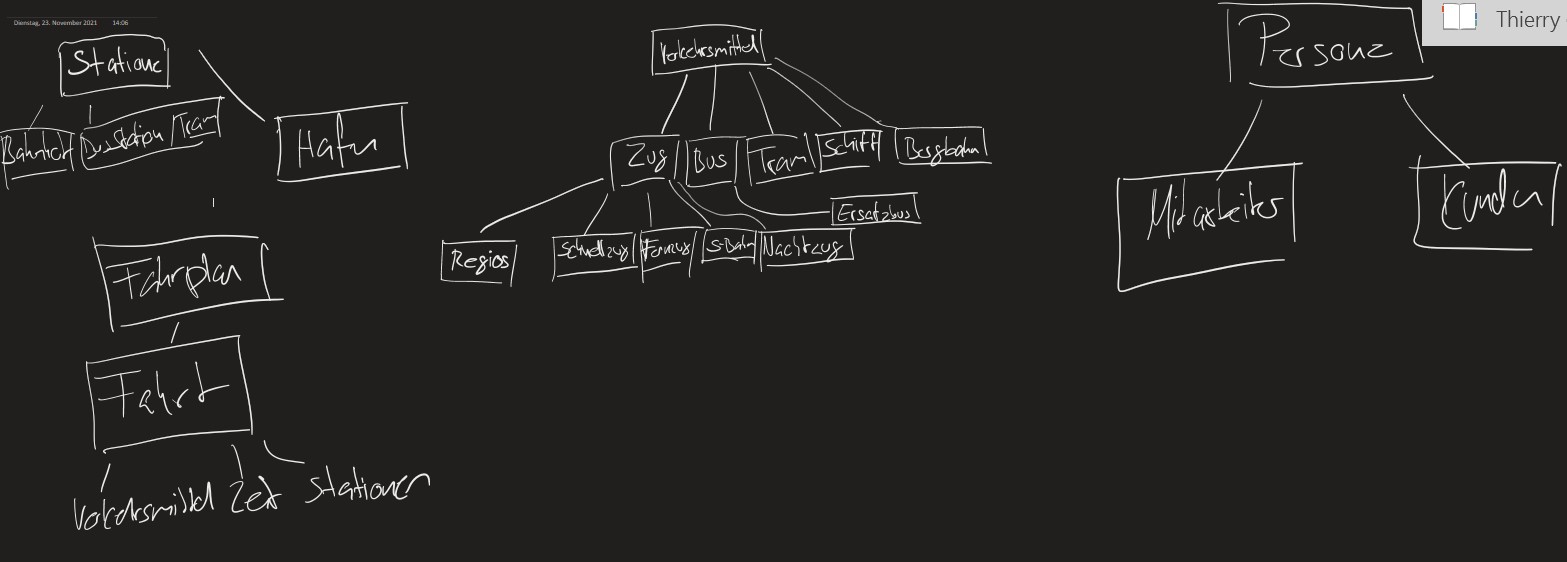 Dienstag, 23. November 2021 14:06
Thierry
Stationen
Bahnhof
Busstation / Tram
Hafen
Fahrplan
Fahrt
Verkehrsmittel
Zeit
Stationen
Verkehrsmittel
Zug
Bus
Tram
Schiff
Bergbahn
Ersatzbus
Regios
Schnellzug
Fernzug
S-Bahn
Nachtzug
Persone
Mitarbeiter
Kunden